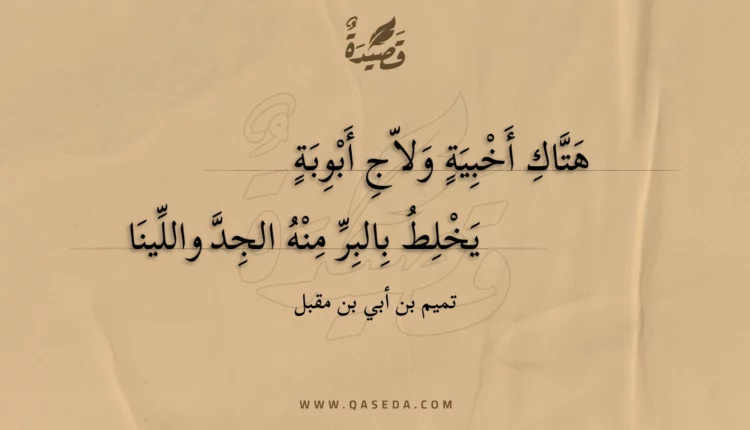 قَصِيْدَةٌ
هَتَّاكِ أَخْبِيَةٍ وَلاّجِ أَبْوِبَةٍ
يَخْلِطُ بِالبِرِّ مِنْهُ الجِدَّ واللِّينَا
تميم بن أبي بن مقبل
WWW.QASEDA.COM